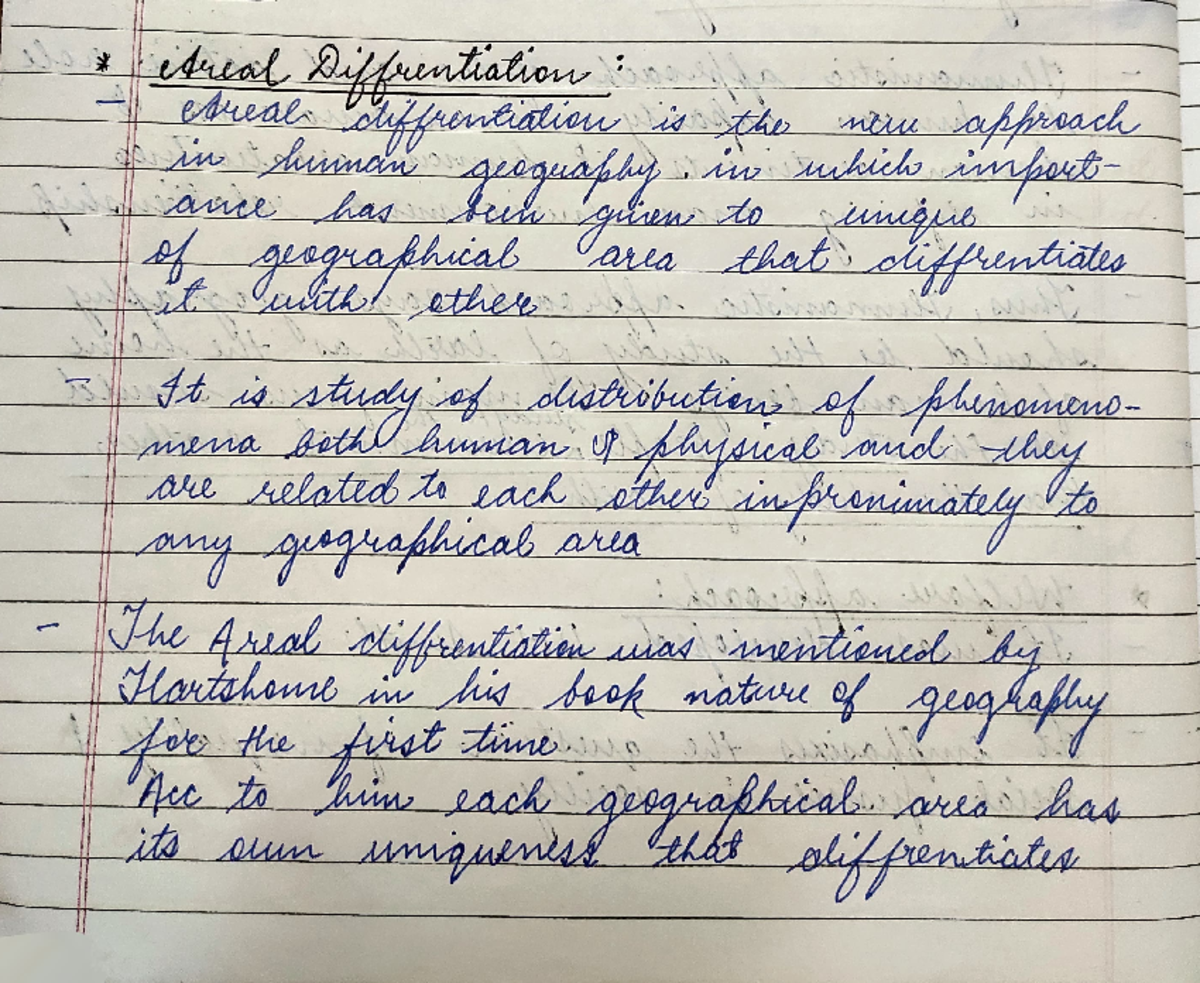 * Areal Diffrentiation :
- Areal diffrentiation is the new approach
in human geography in which import-
ance has been given to unique
of geographical area that diffrentiates
it with other
- It is study of distribution of phenomeno-
mena both human & physical and they
are related to each other inproximately to
any geographical area
- The Areal diffrentiation was mentioned by
Hartshome in his book nature of geography
for the first time
Acc to him each geographical area has
its own uniqueness that diffrentiates